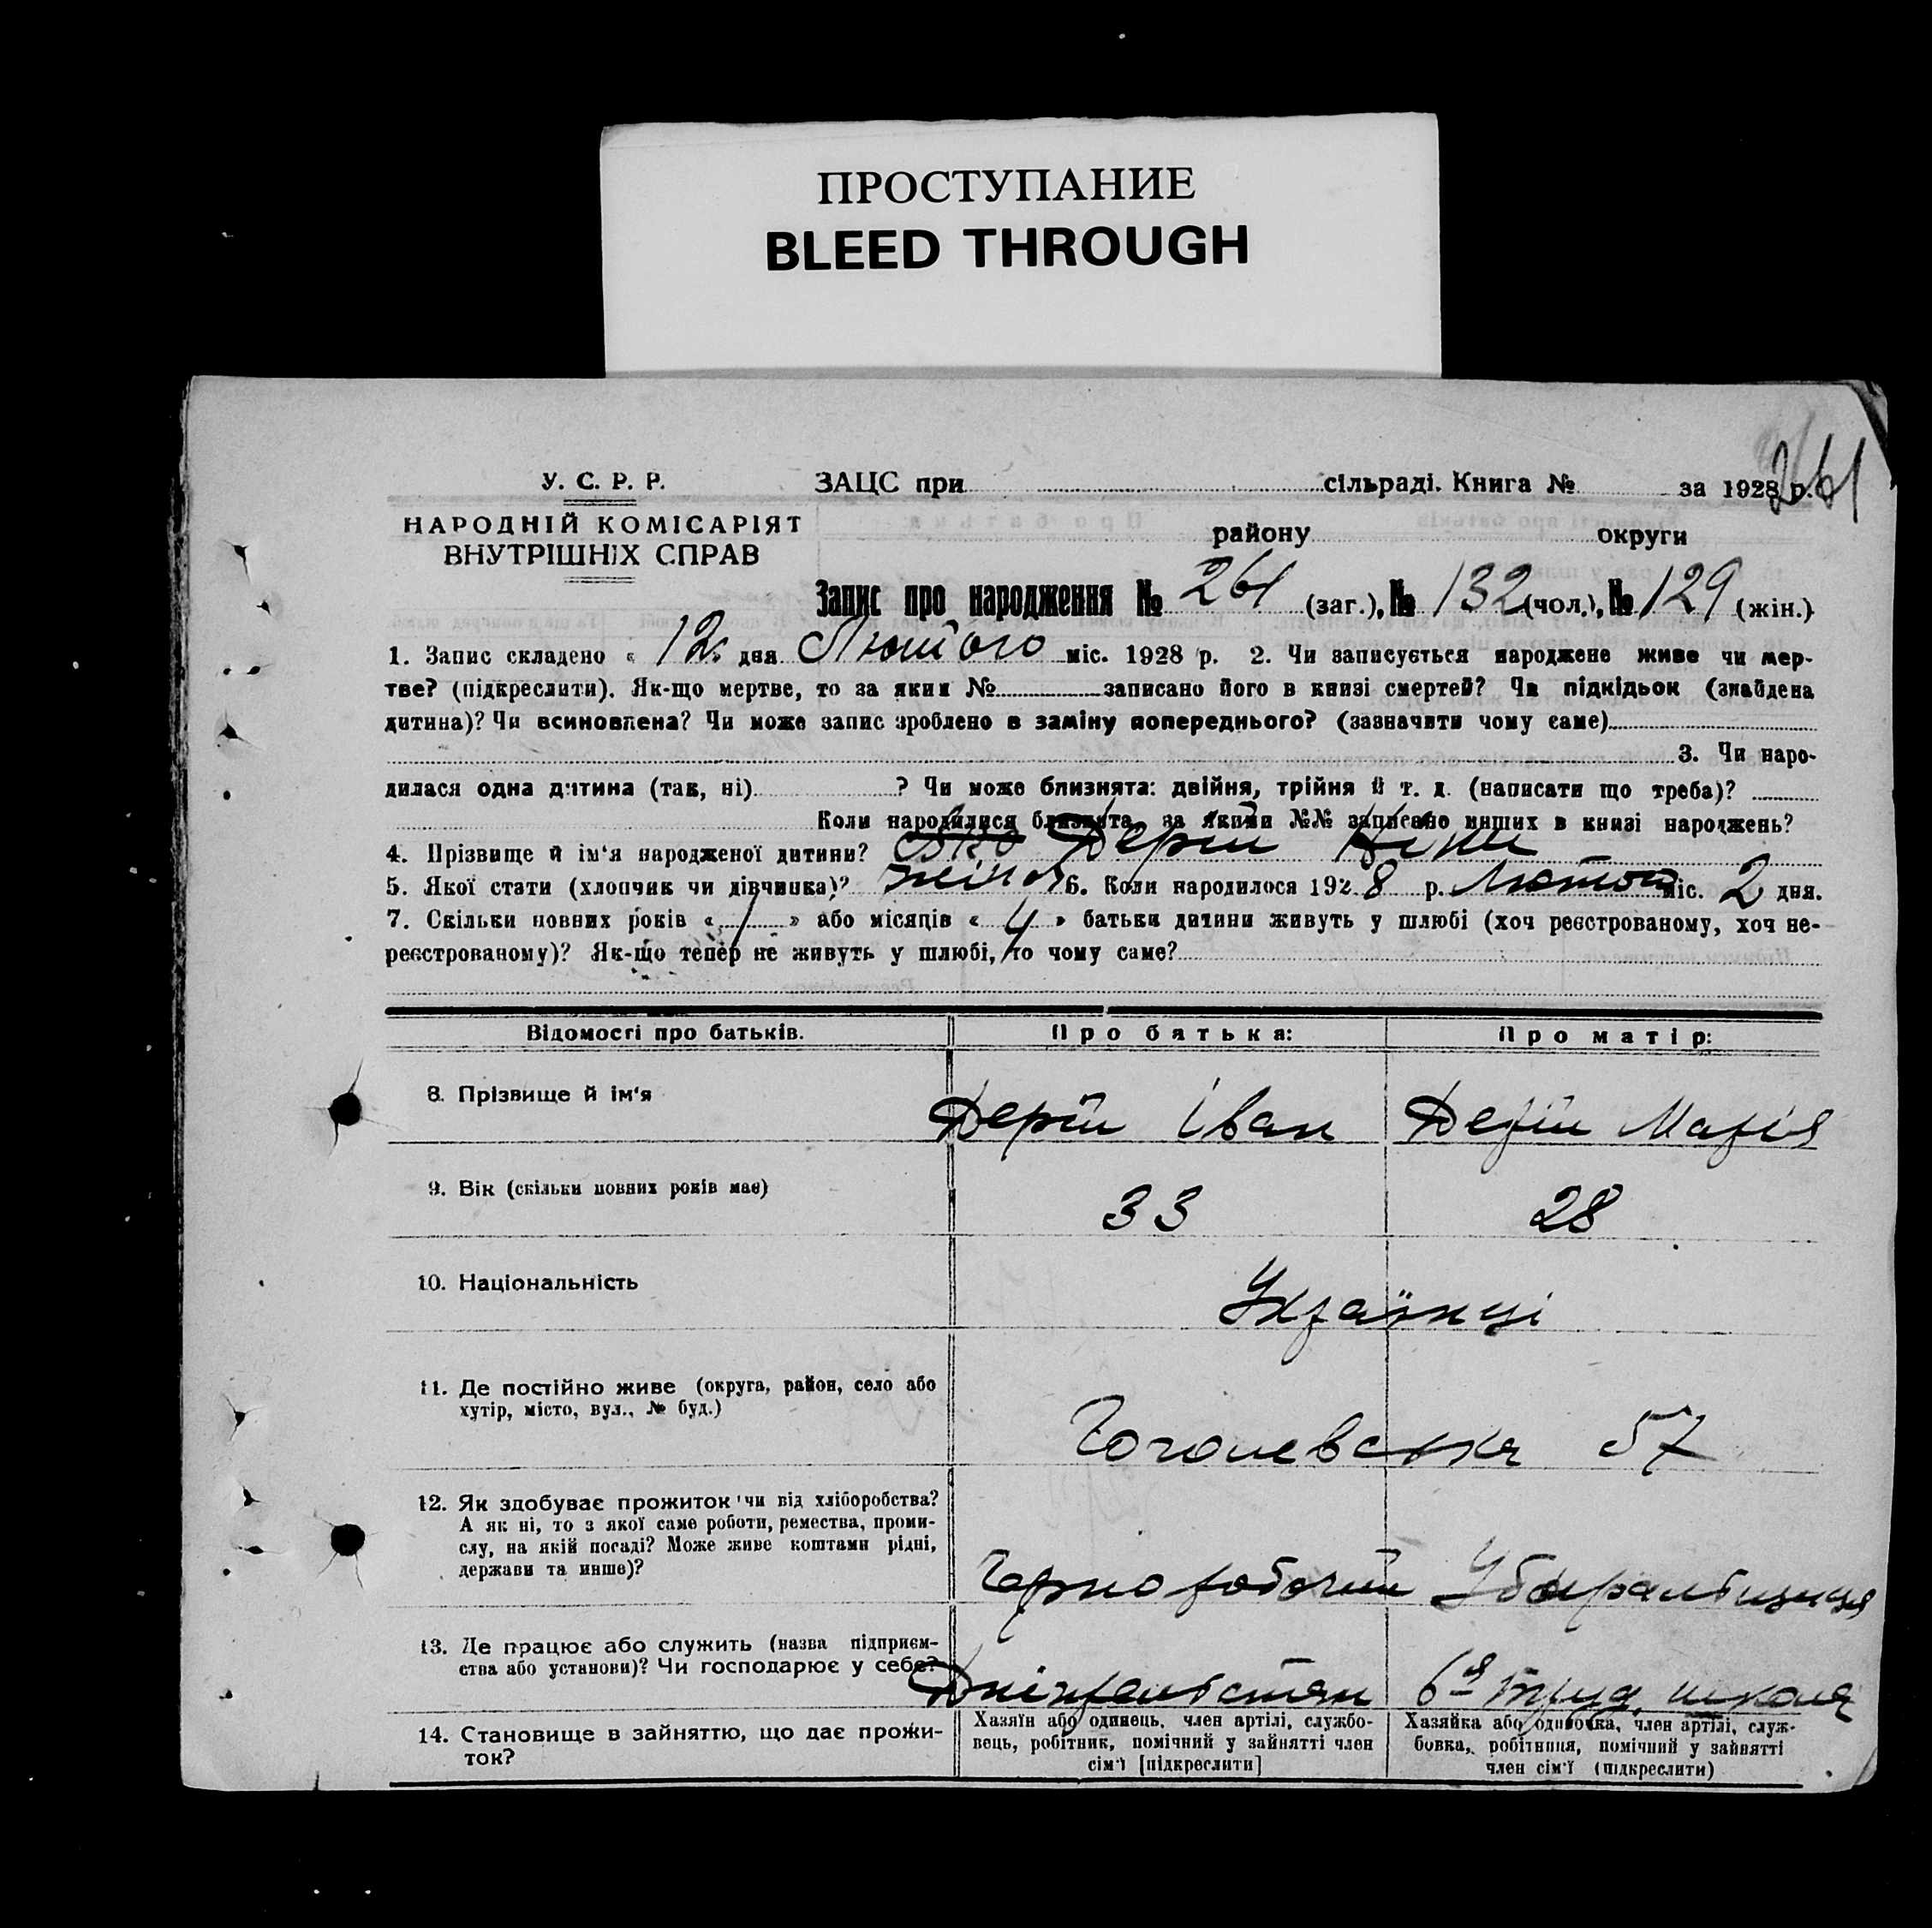 ПРОСТУПАНИЕ
BLEED THROUGH
261
У. С. Р. Р.
НАРОДНІЙ КОМІСАРІЯТ
ВНУТРІШНІХ СПРАВ
ЗАЦС при сільраді. Книга № за 1928 р.
району округи
Запис про народження № 261 (заг.), № 132 (чол.), № 129 (жін.)
1. Запис складено « 12 » дня Лютого міс. 1928 р. 2. Чи записується народжене живе чи мер-
тве? (підкреслити). Як-що мертве, то за яким № записано його в книзі смертей? Чи підкідьок (знайдена
дитина)? Чи всиновлена? Чи може запис зроблено в заміну попереднього? (зазначити чому саме)
3. Чи наро-
дилася одна дитина (так, ні) ? Чи може близнята: двійня, трійня й т. д. (написати що треба)?
Коли народилися близнята, за якими №№ записано инших в книзі народжень?
4. Прізвище й ім'я народженої дитини? Дерій Ніна
5. Якої стати (хлопчик чи дівчинка)? жіноч 6. Коли народилося 1928 р. Лютого міс. 2 дня.
7. Скільки повних років « / » або місяців « 4 » батьки дитини живуть у шлюбі (хоч реєстрованому, хоч не-
реєстрованому)? Як-що тепер не живуть у шлюбі, то чому саме?
Відомості про батьків. Про батька: Про матір:
8. Прізвище й ім'я Дерій Іван Дерій Марія
9. Вік (скільки повних років має) 33 28
10. Національність Українці
11. Де постійно живе (округа, район, село або
хутір, місто, вул., № буд.) Гоголевська 57
12. Як здобуває прожиток чи від хліборобства?
А як ні, то з якої саме роботи, ремества, проми-
слу, на якій посаді? Може живе коштами рідні,
держави та инше)? Чорноробочий Убиральниця
13. Де працює або служить (назва підприєм-
ства або установи)? Чи господарює у себе? 6я труд. школа
14. Становище в зайняттю, що дає прожи-
ток?
Хазяїн або одинець, член артілі, службо-
вець, робітник, помічний у зайнятті член
сім'ї [підкреслити]
Хазяйка або одиночка, член артілі, служ-
бовка, робітниця, помічний у зайнятті
член сім'ї (підкреслити)